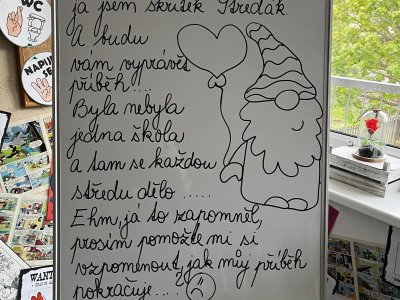 já jsem skřítek Středák.
A budu
vám vyprávět
příběh...
Byla nebyla
jedna škola
a tam se každou
středu dělo .....
Ehm, já to zapomněl,
prosím pomožte mi si
vzpomenout, jak můj příběh
pokračuje...?
WC
NAPIJ
SE
WANTED